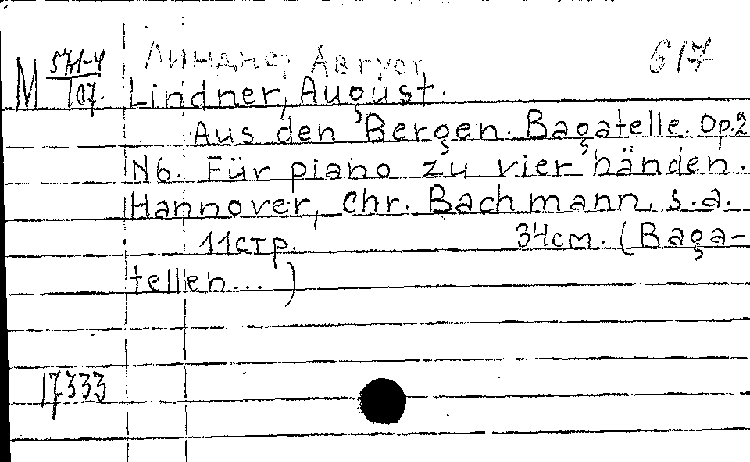 Линднер Август 617
M 571-4/107. Lindner, August.
Aus den Bergen. Bagatelle. Op.2
N6. Für piano zu vier händen.
Hannover, Chr. Bachmann, s.a.
11стр. 34см. (Baga-
tellen...)
17333